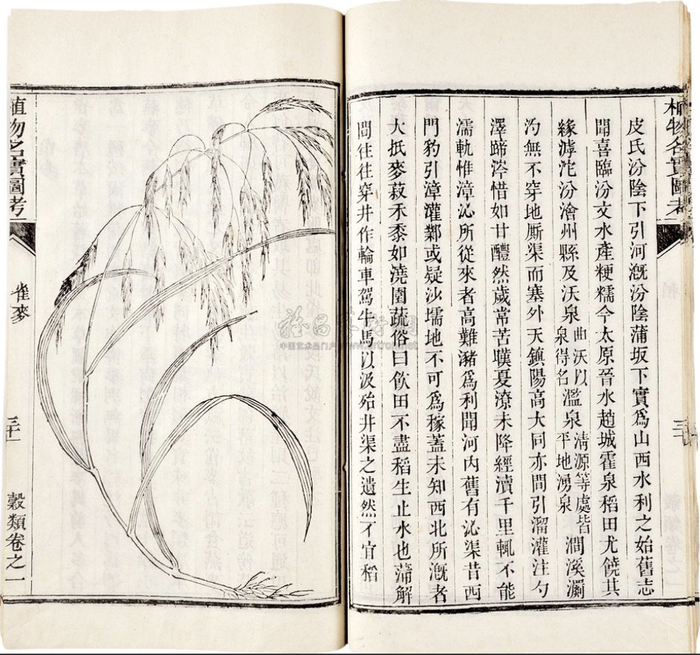 植物名實圖考
皮氏汾陰下引河溉汾陰蒲坂下實爲山西水利之始舊志
聞喜臨汾文水產粳糯今太原晉水趙城霍泉稻田尤饒其
緣滹沱汾澮州縣及沃泉曲沃以泉得名濫泉清源等處皆平地湧泉澗溪灟
汋無不穿地厮渠而塞外天鎮陽高大同亦間引溜灌注勺
澤蹄涔惜如甘醴然歲常苦暵夏潦未降經瀆千里輒不能
濡軌惟漳沁所從來者高難瀦爲利聞河內舊有沁渠昔西
門豹引漳灌鄴或疑沙壖地不可爲稼蓋未知西北所溉者
大抵麥菽禾黍如澆園蔬俗曰飮田不盡稻生止水也蒲解
間往往穿井作輪車駕牛馬以汲殆井渠之遺然不宜稻
植物名實圖考
雀麥
三十一
穀類卷之一